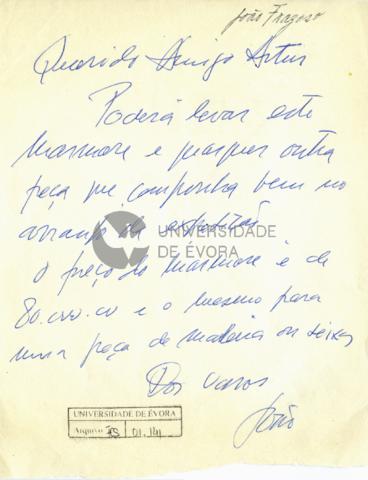 João Fragoso
Querido Amigo Artur
Poderá levar este
marmore e qualquer outra
peça que componha bem no
arranjo da exposição
UNIVERSIDADE
DE ÉVORA
O preço do marmore é de
80.000.00 e o mesmo para
uma peça de madeira ou
Dos
João
UNIVERSIDADE DE ÉVORA
Arquivo